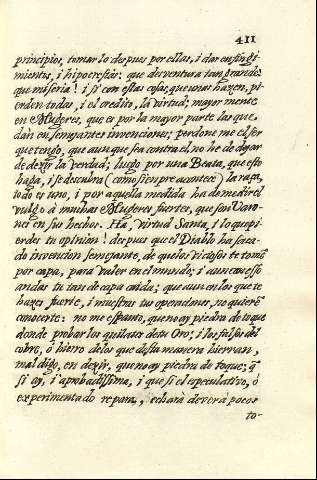 411
principios, tomar lo despues por ellas, i dar en fingi-
mientos, i hipocresias: que desventura tan grande!
que miseria! i si con estas cosas, que unas hazen, pi-
erden todas, i el credito, la virtud; mayor mente
en Mugeres, que es por la mayor parte las que,
dan en semejantes invenciones; perdone me el ser
que tengo, que aun que sea contra el no he de dejar
de dezir la verdad; luego por una Beata, que esto
haga, i se descubra (como sienpre acontece) la raça,
todo es uno, i por aquella medida ha de medir el
vulgo à muchas Mugeres fuertes, que son Varo-
nes en sus hechos. Ha, Virtud Santa, i lo que pi-
erdes tu opinion! despues que el Diablo ha saca-
do invencion semejante, de que los viciosos te tomen
por capa, para valer en el mundo; i aun con esso
andas tu tan de capa caida; que aun en los que te
hazes fuerte, i muestras tus operaciones, no quieren
conocerte: no me espanto, que no ay piedra de toque
donde probar los quilates desta Oro; i los falsos del
cobre, ò hierro de los que desta manera hierran,
mal digo, en dezir, que no ay piedra de toque; q̃
si ay, i aprobadissima, i que si el especulativo, ò
experimentado repara, echarà de verà pocos
to-